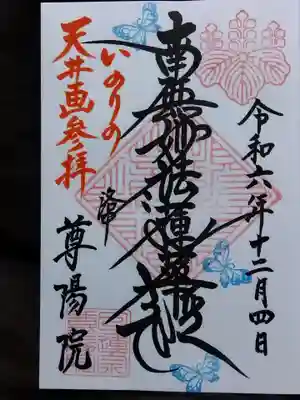 令和六年十二月四日
南無妙法蓮華経
いのりの
天井画参拝
尊陽院